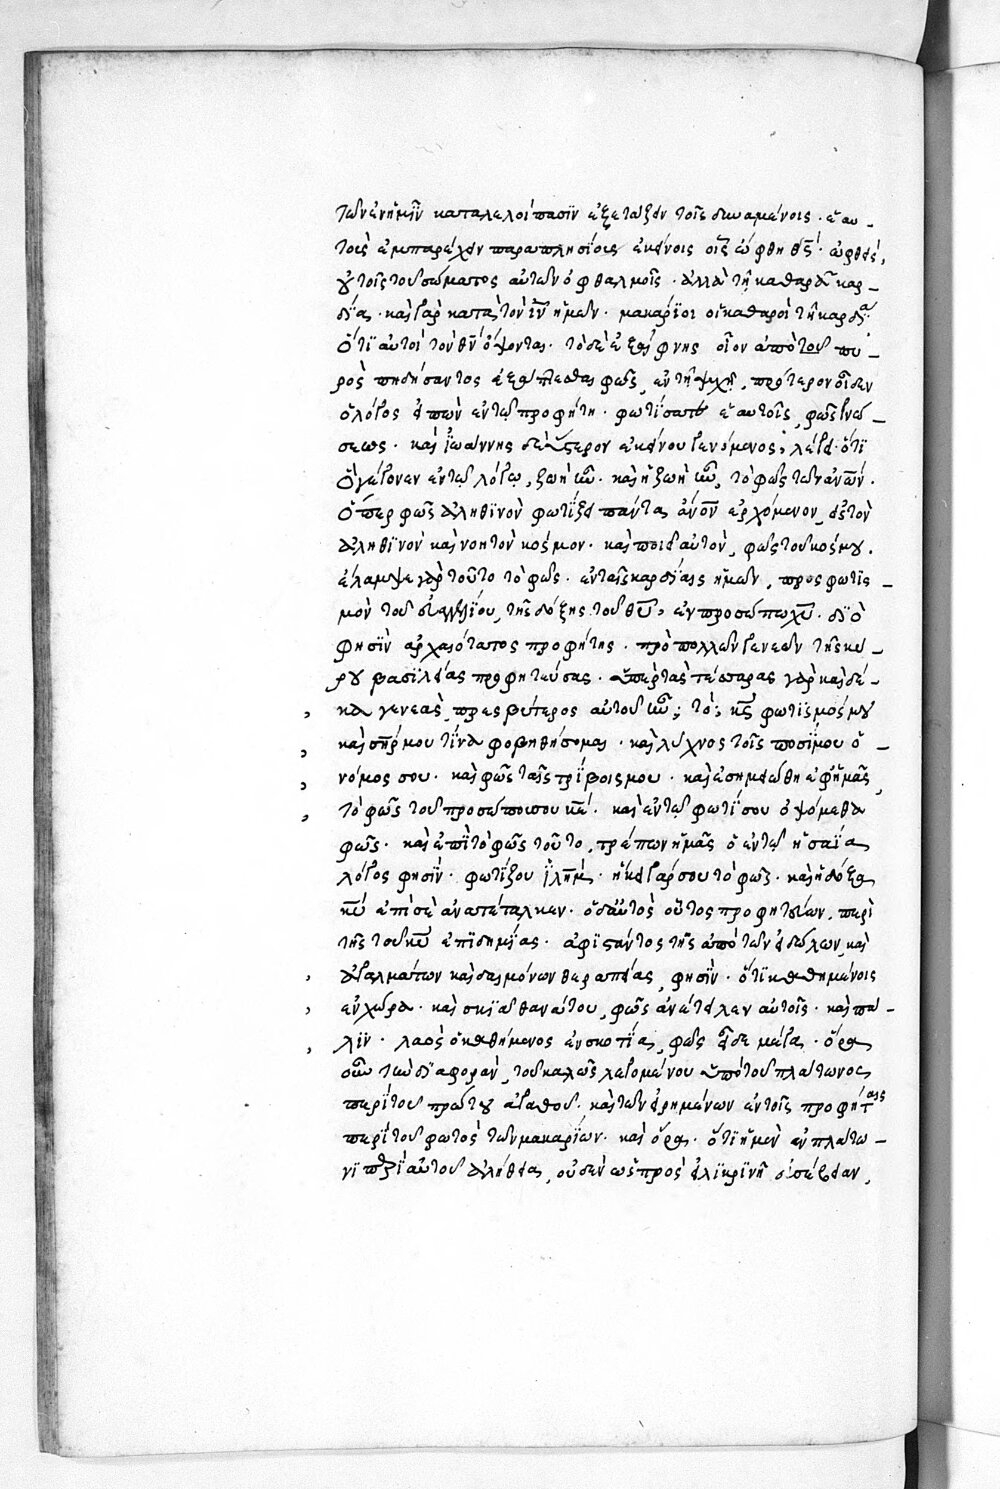 τῶν ἐν ἡμῖν καταλελοίπασιν ἐξετάζειν τοῖς δυναμένοις · ἑαυ -
τοῖς ἐμπαρέχειν παραπλησίοις ἐκείνοις οἷς ὤφθη θς · ὤφθη δὲ,
οὐ τοῖς τοῦ σώματος αὐτῶν ὀφθαλμοῖς · ἀλλὰ τῇ καθαρᾷ καρ -
δίᾳ · καὶ γὰρ κατὰ τὸν ιν ἡμῶν · μακάριοι οἱ καθαροὶ τῇ καρδίᾳ ·
ὅτι αὐτοὶ τὸν θν ὄψονται · τὸ δὲ ἐξαίφνης οἷον ἀπὸ τοῦ πυ -
ρὸς πηδήσαντος ἐξάπτεσθαι φῶς, ἐν τῇ ψυχῇ, πρότερον οἶδεν
ὁ λόγος εἰπὼν ἐν τῷ προφήτῃ · φωτίσατε ἑαυτοῖς, φῶς γνώ -
σεως · καὶ ἰωάννης δεύτερον ἐκείνου γενόμενος, λέγει · ὅτι
ὃ γέγονεν ἐν τῷ λόγῳ, ζωὴ ἦν · καὶ ἡ ζωὴ ἦν, τὸ φῶς τῶν ανων ·
ὅπερ φῶς ἀληθινὸν φωτίζει πάντα ανον ἐρχόμενον, εἰς τὸν
ἀληθινὸν καὶ νοητὸν κόσμον · καὶ ποιεῖ αὐτὸν, φῶς τοῦ κόσμου ·
ἔλαμψε γὰρ τοῦτο τὸ φῶς · ἐν ταῖς καρδίαις ἡμῶν, πρὸς φωτισ -
μὸν τοῦ εὐαγγελίου, τῆς δόξης τοῦ θυ, ἐν προσώπῳ χυ · διὸ
φησὶν ἀρχαιότατος προφήτης · πρὸ πολλῶν γενεῶν τῆς κύ -
ρου βασιλείας προφητεύσας · ὑπὲρ τὰς τέσσαρας γὰρ καὶ δέ -
κα γενεὰς, πρεσβύτερος αὐτοῦ ἦν ; τό ; κς φωτισμός μου
καὶ σηρ μου τίνα φοβηθήσομαι · καὶ λύχνος τοῖς ποσί μου ὁ -
νόμος σου · καὶ φῶς ταῖς τρίβοις μου · καὶ ἐσημειώθη ἐφ' ἡμᾶς,
τὸ φῶς τοῦ προσώπου σου κε · καὶ ἐν τῷ φωτί σου ὀψόμεθα
φῶς · καὶ ἐπὶ τὸ φῶς τοῦτο, τρέπων ἡμᾶς ὁ ἐν τῷ ἡσαΐᾳ
λόγος φησίν · φωτίζου ιλημ · ἥκει γάρ σου τὸ φῶς · καὶ ἡ δόξα
κυ ἐπὶ σὲ ἀνατέταλκεν · ὁ δ' αὐτὸς οὗτος προφητεύων, περὶ
τῆς τοῦ κυ ἐπιδημίας · ἀφιστάντος τῆς ἀπὸ τῶν εἰδώλων καὶ
ἀγαλμάτων καὶ δαιμόνων θεραπείας, φησίν · ὅτι καθημένοις
ἐν χώρᾳ · καὶ σκιᾷ θανάτου, φῶς ἀνέτειλεν αὐτοῖς · καὶ πά -
λιν · λαὸς ὁ καθήμενος ἐν σκοτίᾳ, φῶς εἶδε μέγα · ὅρα
οὖν τὴν διαφορὰν, τοῦ καλῶς λεγομένου ὑπὸ τοῦ πλάτωνος
περὶ τοῦ πρώτου ἀγαθοῦ · καὶ τῶν εἰρημένων ἐν τοῖς προφήταις
περὶ τοῦ φωτὸς τῶν μακαρίων · καὶ ὅρα · ὅτι ἡ μὲν ἐν πλάτω -
νι περὶ αὐτοῦ ἀλήθεια, οὐδὲν ὡς πρὸς εἰλικρινῆ εὐσέβειαν,